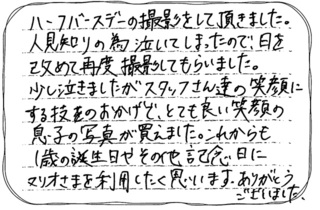 ハーフバースデーの撮影をして頂きました。
人見知りの為泣いてしまったので、日を
改めて再度撮影してもらいました。
少し泣きましたがスタッフさん達の笑顔に
する技在のおかげで、とても良い笑顔の
息子の写真が買えました。これからも
1歳の誕生日やその他記念日に
マリオさまを利用したく思います。ありがとう
ございました。